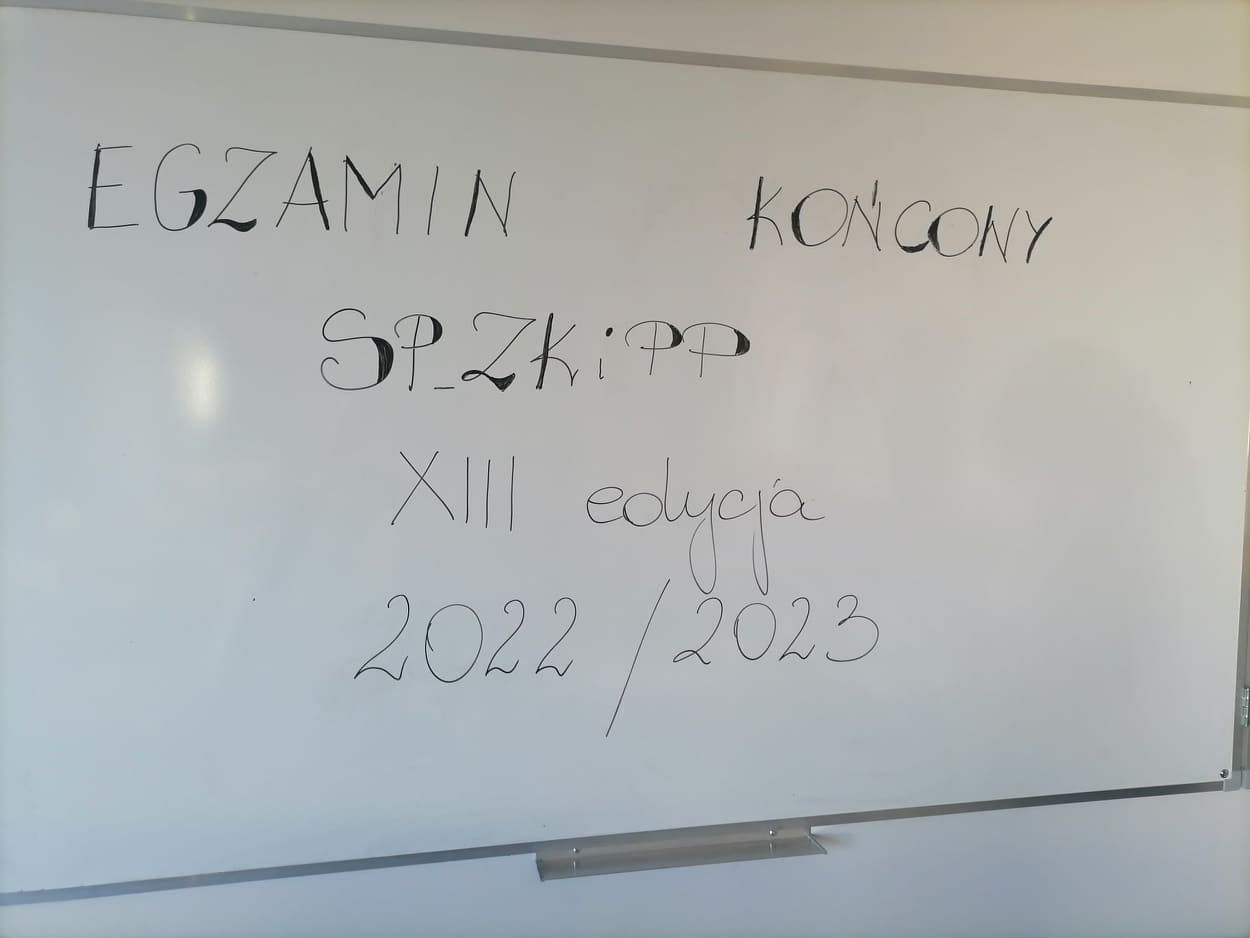 EGZAMIN KOŃCONY
SP_ZKiPP
XIII edycja
2022/2023